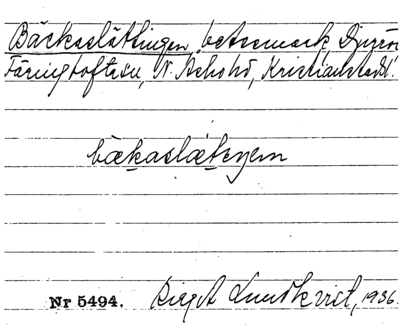 Bäckaslättingen, betesmark, Djurröd
Färingtofta sn, N. Åsbo hd, Kristianstads l.
bäkaslätegen
Nr 5494. Birgit Lundkvist, 1936.